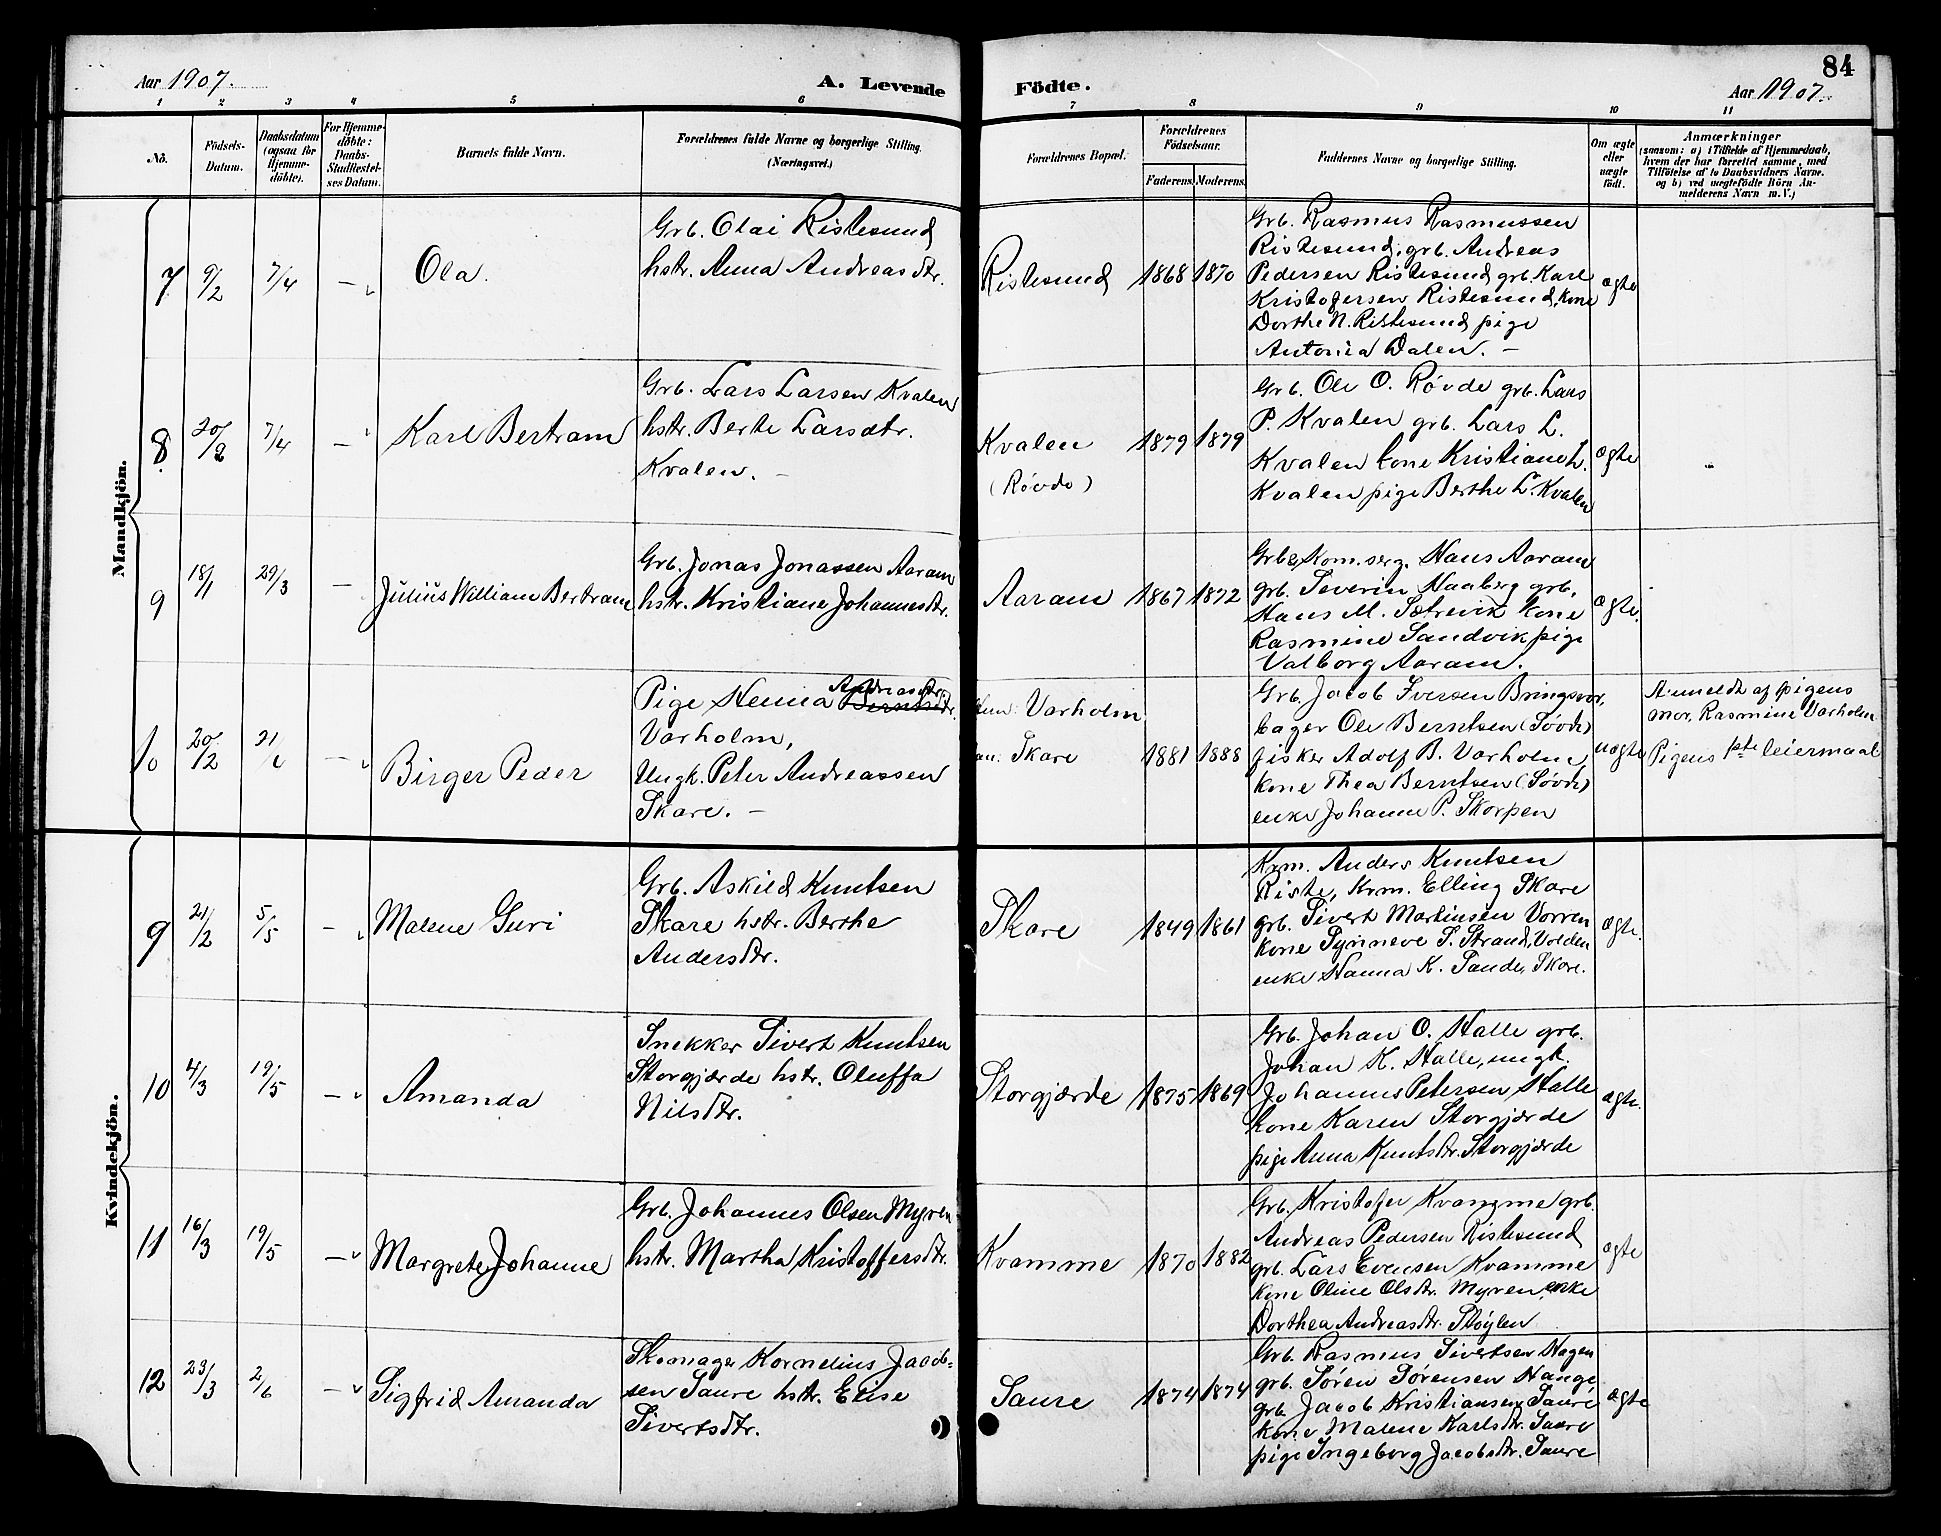 84
Aar 1907. A. Levende Födte. Aar 1907.
1 2 3 4 5 6 7 8 9 10 11
No.
Födsels-
Datum.
Daabsdatum
(ogsaa for
Hjemme-
döbte).
For Hjemme-
döbte:
Daabs-
Stadfestel-
ses Datum.
Barnets fulde Navn.
Forældrenes fulde Navne og borgerlige Stilling.
(Næringsvei.)
Forældrenes Bopæl.
Forældrenes
Födselsaar.
Faderens. Moderens.
Faddernes Navne og borgerlige Stilling.
Om ægte
eller
uægte
født.
Anmærkninger
(saasom: a) i Tilfælde af Hjemmedaab,
hvem der har forrettet samme, med
Tilföielse af to Daabsvidners Navne.
og b) ved uægtefödte Börn An-
melderens Navn m. V.)
Mandkjön.
7 9/2 7/4 —
Ola.
Grb. Olai Ristesund
hstr. Anna Andreasdtr.
Ristesund 1868 1870
Grb. Rasmus Rasmussen
Ristesund, grb. Andreas
Pedersen Ristesund grb. Karl
Kristofersen Ristesund, kone
Dorthe N. Ristesund pige
Antonia Dalen. —
ægte
8 20/2 7/4 —
Karl Bertram
Grb. Lars Larsen Kvalen
hstr. Berte Larsdtr.
Kvalen. —
Kvalen
(Røvde)
1879 1879
Grb. Ole O. Røvde grb. Lars
P. Kvalen grb. Lars L.
Kvalen kone Kristiane L.
Kvalen pige Berthe L. Kvalen
ægte
9 18/1 29/3 —
Julius William Bertram
Grb. Jonas Jonassen Aaram
hstr. Kristiane Johannesdtr.
Aaram 1867 1872
Grb & Kom.serg. Hans Aaram
grb. Severin Haaberg grb.
Hans M. Sætrevik kone
Rasmine Sandvik pige
Valborg Aaram.
ægte.
10 20/2 21/
Birger Peder
Pige Henna Andreasdtr.
Varholm,
Ungk. Peter Andreassen
Skare. —
Varholm
Skare
1881 1888
Grb. Jacob Iversen Bringsvor,
bager Ole Berntsen (Søvde)
fisker Adolf B. Varholm,
kone Thea Berntsen (Søvde)
enke Johanne P. Skorpen
uægte
Anmeldt af pigens
mor, Rasmine Varholm
Pigens 1ste leiermaal
Kvindekjön.
9 21/2 5/5 —
Malene Guri
Grb. Askild Knutsen
Skare hstr. Berthe
Andersdtr.
Skare 1849 1861
Krm. Anders Knutsen
Riste, Krm. Elling Skare
grb. Sivert Martinsen Vorren
kone Synneve S. Strand, Volden
enke Hanna K. Sande, Skare.
ægte.
10 4/3 19/5 —
Amanda
Snekker Sivert Knutsen
Storgjærde hstr. Oluffa
Nilsdtr.
Storgjærde 1875 1869
Grb. Johan O. Halle grb.
Johan K. Halle, ungk.
Johannes Petersen Halle
kone Karen Storgjærde
pige Anna Knutsdtr. Storgjærde
ægte.
11 16/3 19/5 —
Margrete Johanne
Grb. Johannes Olsen Myren
hstr. Martha Kristoffersdtr.
Kvamme 1870 1882
Grb. Kristofer Kvangme grb.
Andreas Pedersen Ristesund
grb. Lars Evensen Kvamme
kone Oline Olsdtr. Myren, enke
Dorthea Andreasdtr. Støylen
ægte
12 23/3 2/6 —
Sigfrid Amanda
Skomager Kornelius Jacob-
sen Saure hstr. Elise
Sivertsdtr.
Saure 1874 1874
Grb. Rasmus Sivertsen Hagen
grb. Søren Sørensen Hauge
grb. Jacob Kristiansen Saure
kone Malene Karlsdtr. Saure
pige Ingeborg Jacobsdtr. Saure
ægte